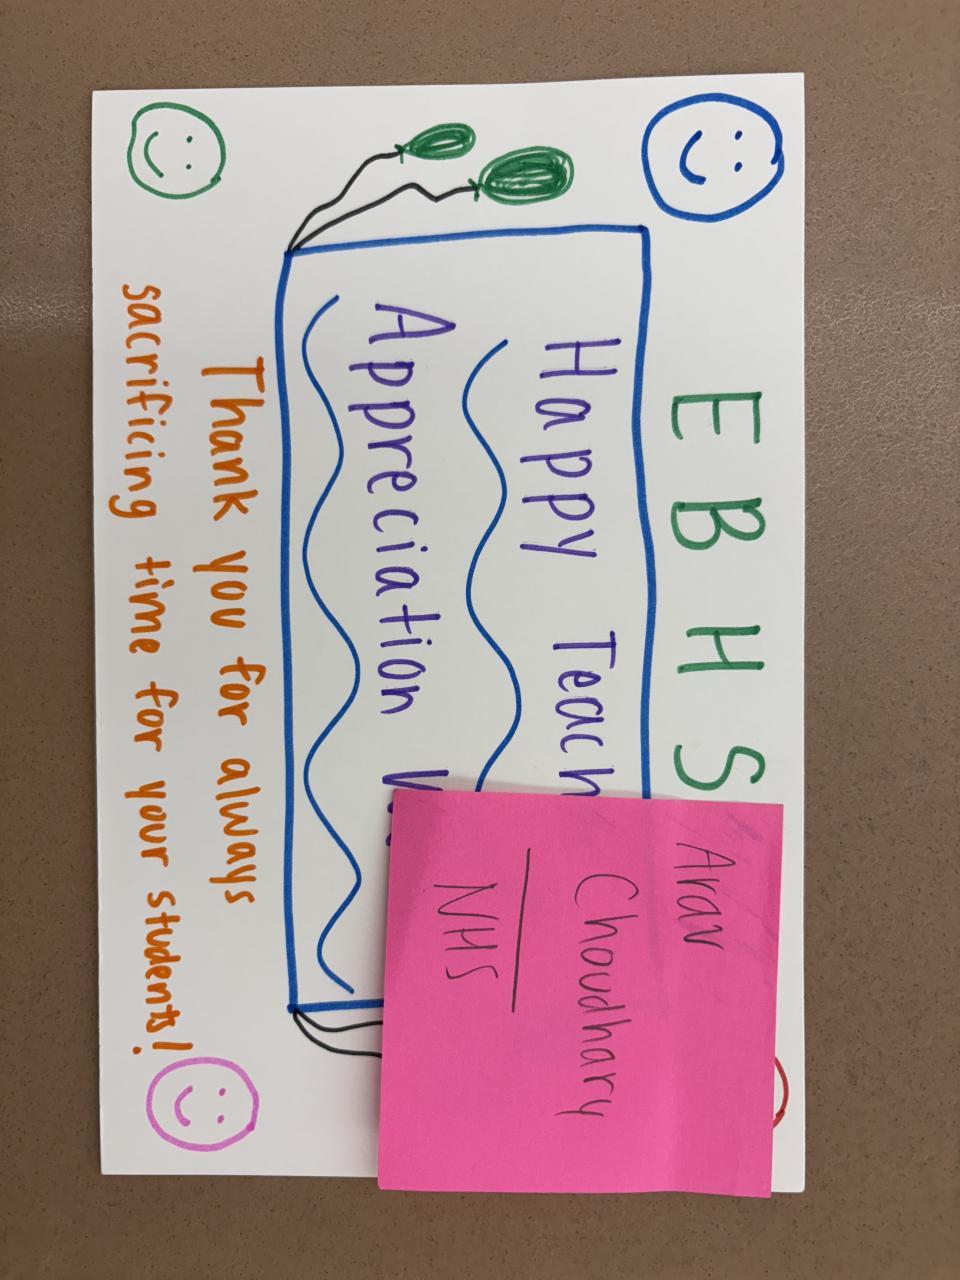 EBHS
Happy Teach
Appreciation W
Thank you for always
sacrificing time for your students!
Arav
Choudhary
NHS